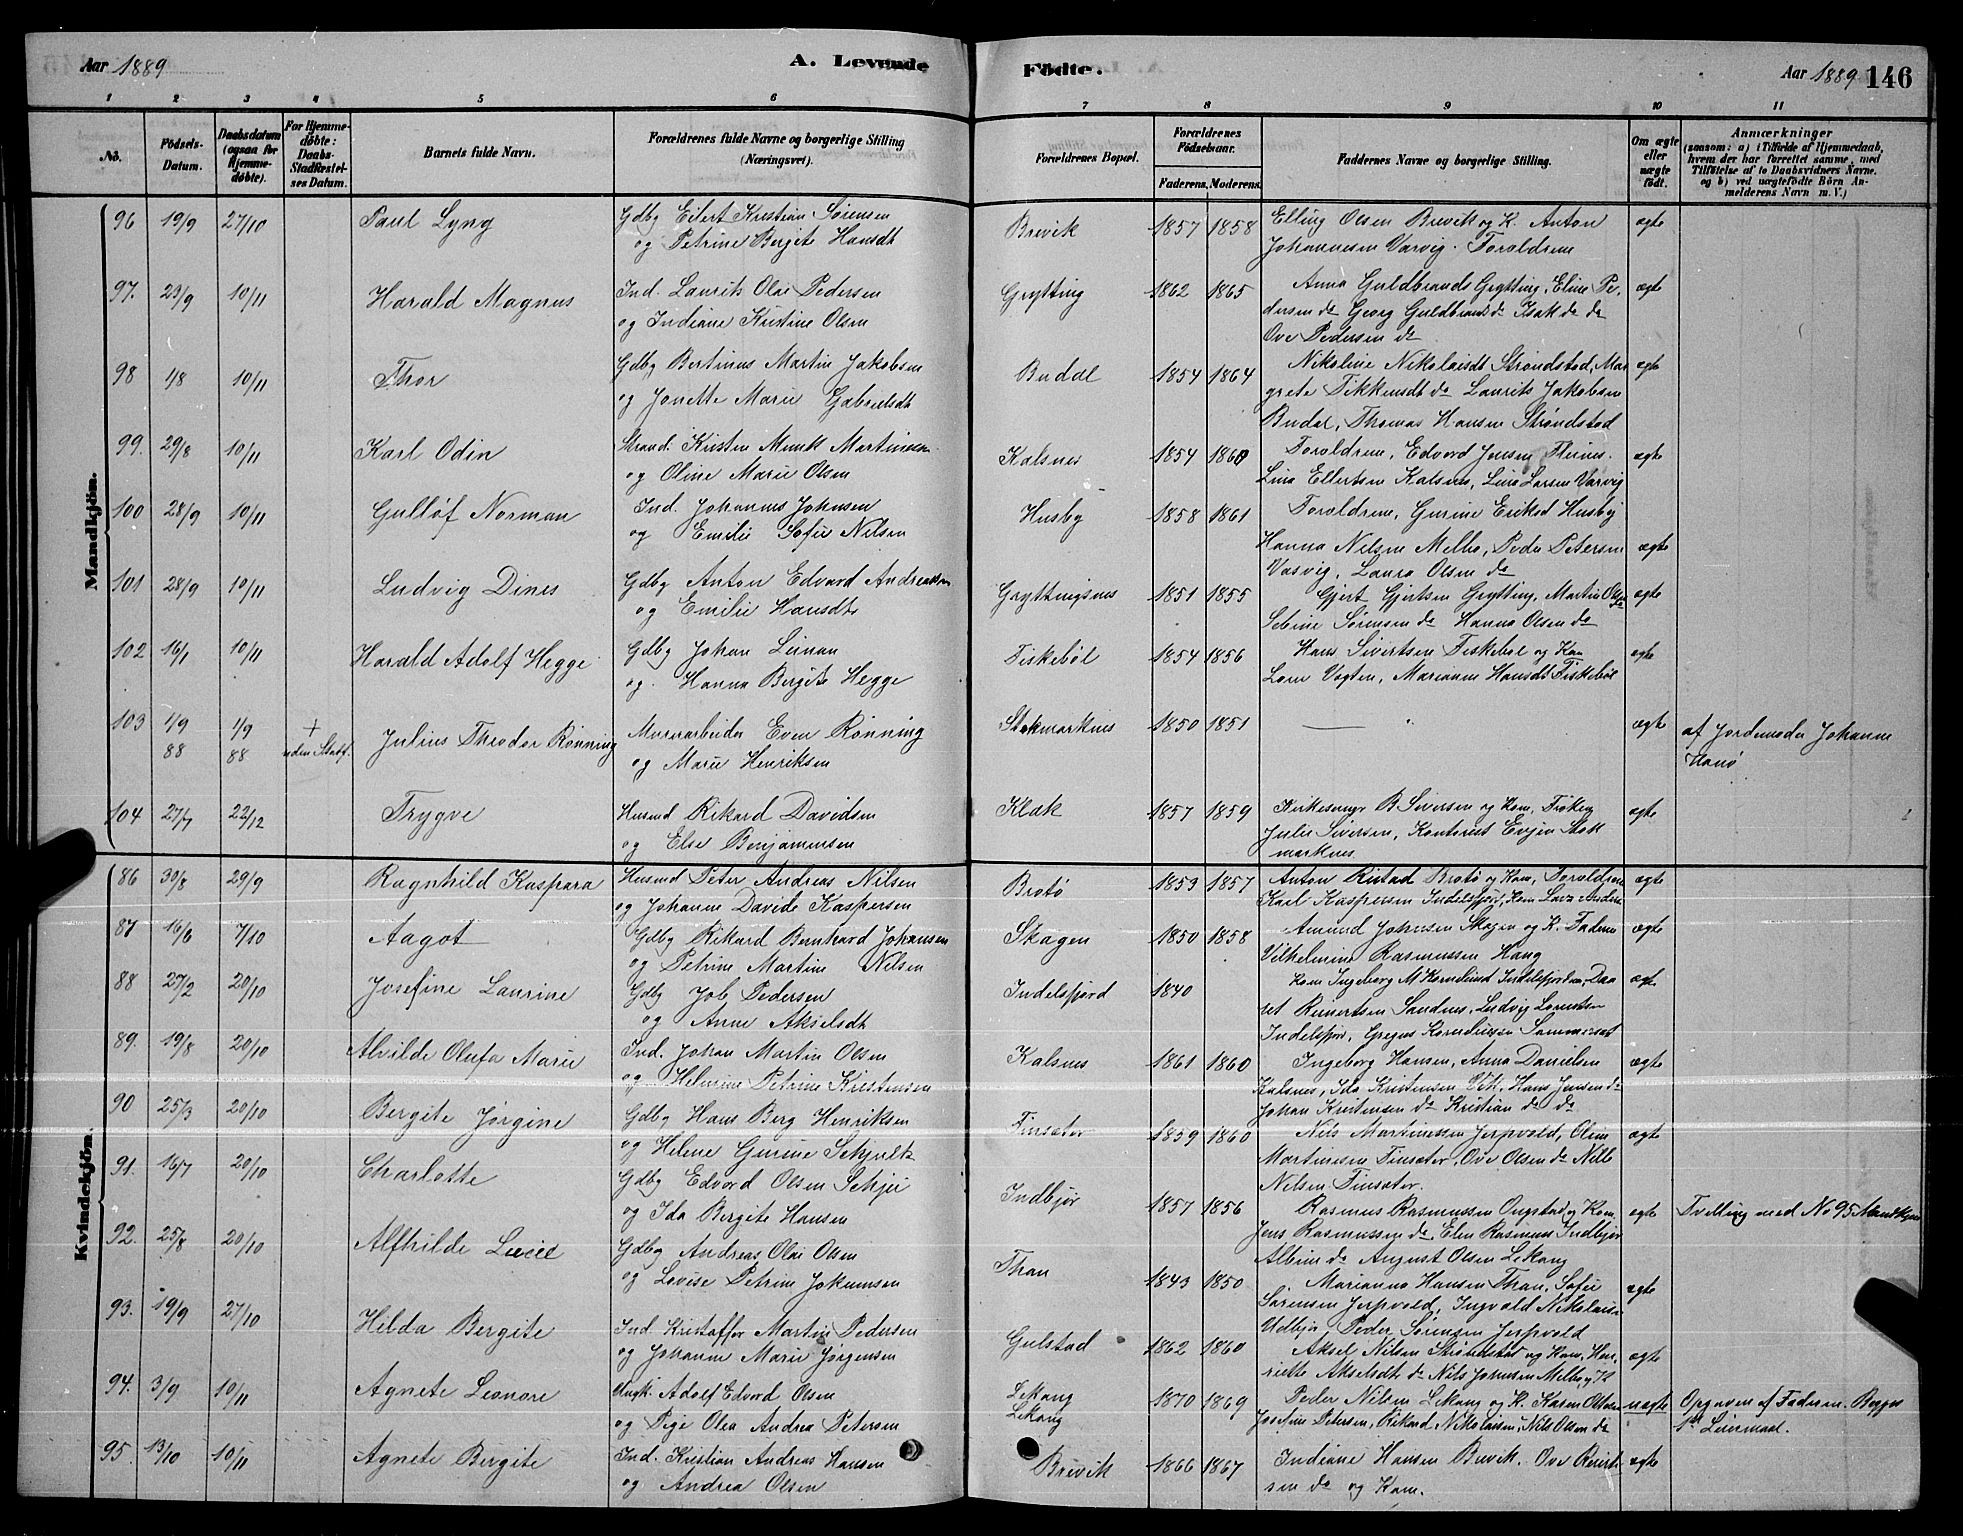 Aar 1889 A. Levende Fødte. Aar 1889 146
1 2 3 4 5 6 7 8 9 10 11
No. Fødsels-Datum. Daabsdatum (ogsaa for Hjemmedøbte). For Hjemmedøbte: Daabs-Stadfæstelses Datum. Barnets fulde Navn. Forældrenes fulde Navne og borgerlige Stilling (Næringsvei). Forældrenes Bopæl. Forældrenes Fødselsaar. Faderens. Moderens. Faddernes Navne og borgerlige Stilling. Om ægte eller uægte født. Anmærkninger (saasom: a) i Tilfælde af Hjemmedaab, hvem der har forrettet samme, med Tilføielse af to Daabsvidners Navne, og b) ved uægtefødte Børn Anmelderens Navn m. V.)
Mandkjøn.
96 19/9 27/10 Paul Lyng Gdbg Eilert Kristian Sørensen Brevik 1857 1858 Elling Olsen Brevik og K. Anton ægte
og Petrine Bergite Hansdt Johannesen Varvig. Foroldrene
97. 23/9 10/11 Harald Magnus Ind. Laurits Olai Pedersen Grytting 1862 1865 Anna Guldbrands Grytting, Eline Pe- ægte
og Indiane Kristine Olsen dersen do Georg Guldbrands do Isak do do
Ove Pedersen do
98 1/8 10/11 Thor Gdbg Bertinus Martin Jakobsen Budal 1854 1864 Nikoline Nikolaisdt Strøndstad, Mar ægte
og Jonette Marie Gabrielsdt grete Fikkensdt do Laurits Jakobsen
Budal, Thomas Hansen Strøndstad
99. 29/8 10/11 Karl Odin Strand. Kristen Munk Martinsen Kalsnes 1854 1860 Foroldrene, Edvard Jensen ægte
og Oline Marie Olsen Lina Ellertsen Kalsnes, Lina Larsen Varvig
100 28/9 10/11 Gulløf Norman Ind. Johannes Johnsen Husby 1858 1861 Foroldrene, Gurine Eriksd Husby
og Emilie Sofie Nilsen Hanna Nilsen Melbo, Peder Petersen ægte
Vasvig, Laura Olsen do
101 28/9 10/11 Ludvig Dines Gdbg Anton Edvard Andreassen Gryttingsnes 1851 1855 Gjert Gjertsen Grytting, Martin Olsen ægte
og Emilie Hansdt Sebine Sørensen do Hanna Olsen do
102 16/1 10/11 Harald Adolf Hegge Gdbg Johan Leinan Fiskebøl 1854 1856 Hans Sivertsen Fiskebøl og Kon ægte
og. Hanna Bergite Hegge Vogten, Marianne Hansdt Fiskebøl
103 1/9 88 1/9 88 + uden Stadf. Julius Theodor Rønning Murarbeider Even Rønning Stokmarknes 1850 1851 — " ægte af Jordemoder Johanne
og Marie Henriksen
104 27/7 22/12 Trygve Husmd Rikard Davidsen Klak 1857 1859 Kirkesanger B. Siversen og Kone, Frøken ægte
og Else Benjaminsen Julie Siversen, Kontorist Evjen Stok
marknes.
Kvindekjøn.
86 30/8 29/9 Ragnhild Kaspara Husmd Peter Andreas Nilsen Brotø 1853 1857 Anton Ristad Brotø og Kone, Foroldrene ægte
og Johanne Davide Kaspersen Karl Kaspersen Indelsfjor, Kone
87 16/6 7/10 Aagot Gdbg Rikard Bernhard Johansen Skagen 1850 1858 Amund Johnsen Skagen og K. Faderen ægte
og Petrine Martine Nilsen Vilhelmine Rasmussen Haug
88 27/2 20/10 Josefine Laurine Gdbg Job Pedersen Indelsfjord 1840 Kone Ingeborg M Kornelius Indelsfjorden, Daa ægte
og Anne Akselsdt ret Reinertsen Sandnes, Ludvig Lorentsen
Indelsfjor, Gregus Korneliussen Sommerset
89. 19/8 20/10 Alvilde Olufa Marie Ind. Johan Martin Olsen Kalsnes 1861 1860 Ingeborg Hansen, Anna Danielsen ægte
og Helmine Petrine Kristensen Kalsnes, Ida Kristensen Vik, Hans Jensen do
Johan Kristensen do Kristian do do
90 25/3 20/10 Bergite Jørgine Gdbg Hans Berg Henriksen Finsæter 1859 1860 Nils Martinessen Jerpvold, Oline ægte
og Helene Gurine Schjulk Martinesen Finsæter, Ove Olsen do Nille
Nilsen Finsæter.
91. 16/7 20/10 Charlotte Gdbg Edvard Olsen Schjei Indbjør 1857 1856 Rasmus Rasmussen Ongstad og Kone, ægte Tvilling med No 95 Mandkjøn
og Ida Bergite Hansen Jens Rasmussen do Elen Rasmus Indbjør
Albine do August Olsen Lekang
92. 25/8 20/10 Alfhilde Lucie Gdbg Andreas Olai Olsen Than 1843 1850 Marianna Hansen Than, Sofie ægte
og Lovise Petrine Jokumsen Sørensen Jerpvold, Ingvald Nikolaisen
Udbjør Peder Sørensen Jerpvold
93. 19/9 27/10 Hilda Bergite Ind Kristoffer Martin Pedersen Gulstad 1862 1860 Aksel Nilsen Strøndstad og Kone, Hen- ægte
og Johanne Marie Jørgensen riette Akselsdt do Nils Johnsen Melbo, og K
94. 3/9 10/11 Agnete Leonore Ungk. Adolf Edvard Olsen Lekang 1870 1869 Peder Nilsen Lekang og K. Karen Olsen uægte Opgaven af Faderen. Begges
og Pige Olea Andrea Petersen Lekang Josefine Petersen, Rikard Nikolaisen, Nils Olsen do 1ste Leiermaal.
95. 13/10 10/11 Agnete Bergite Ind. Kristian Andreas Hansen Brevik 1866 1867 Indiane Hansen Brevik. Ove Reiert- ægte
og Andrea Olsen sen do og Kone.